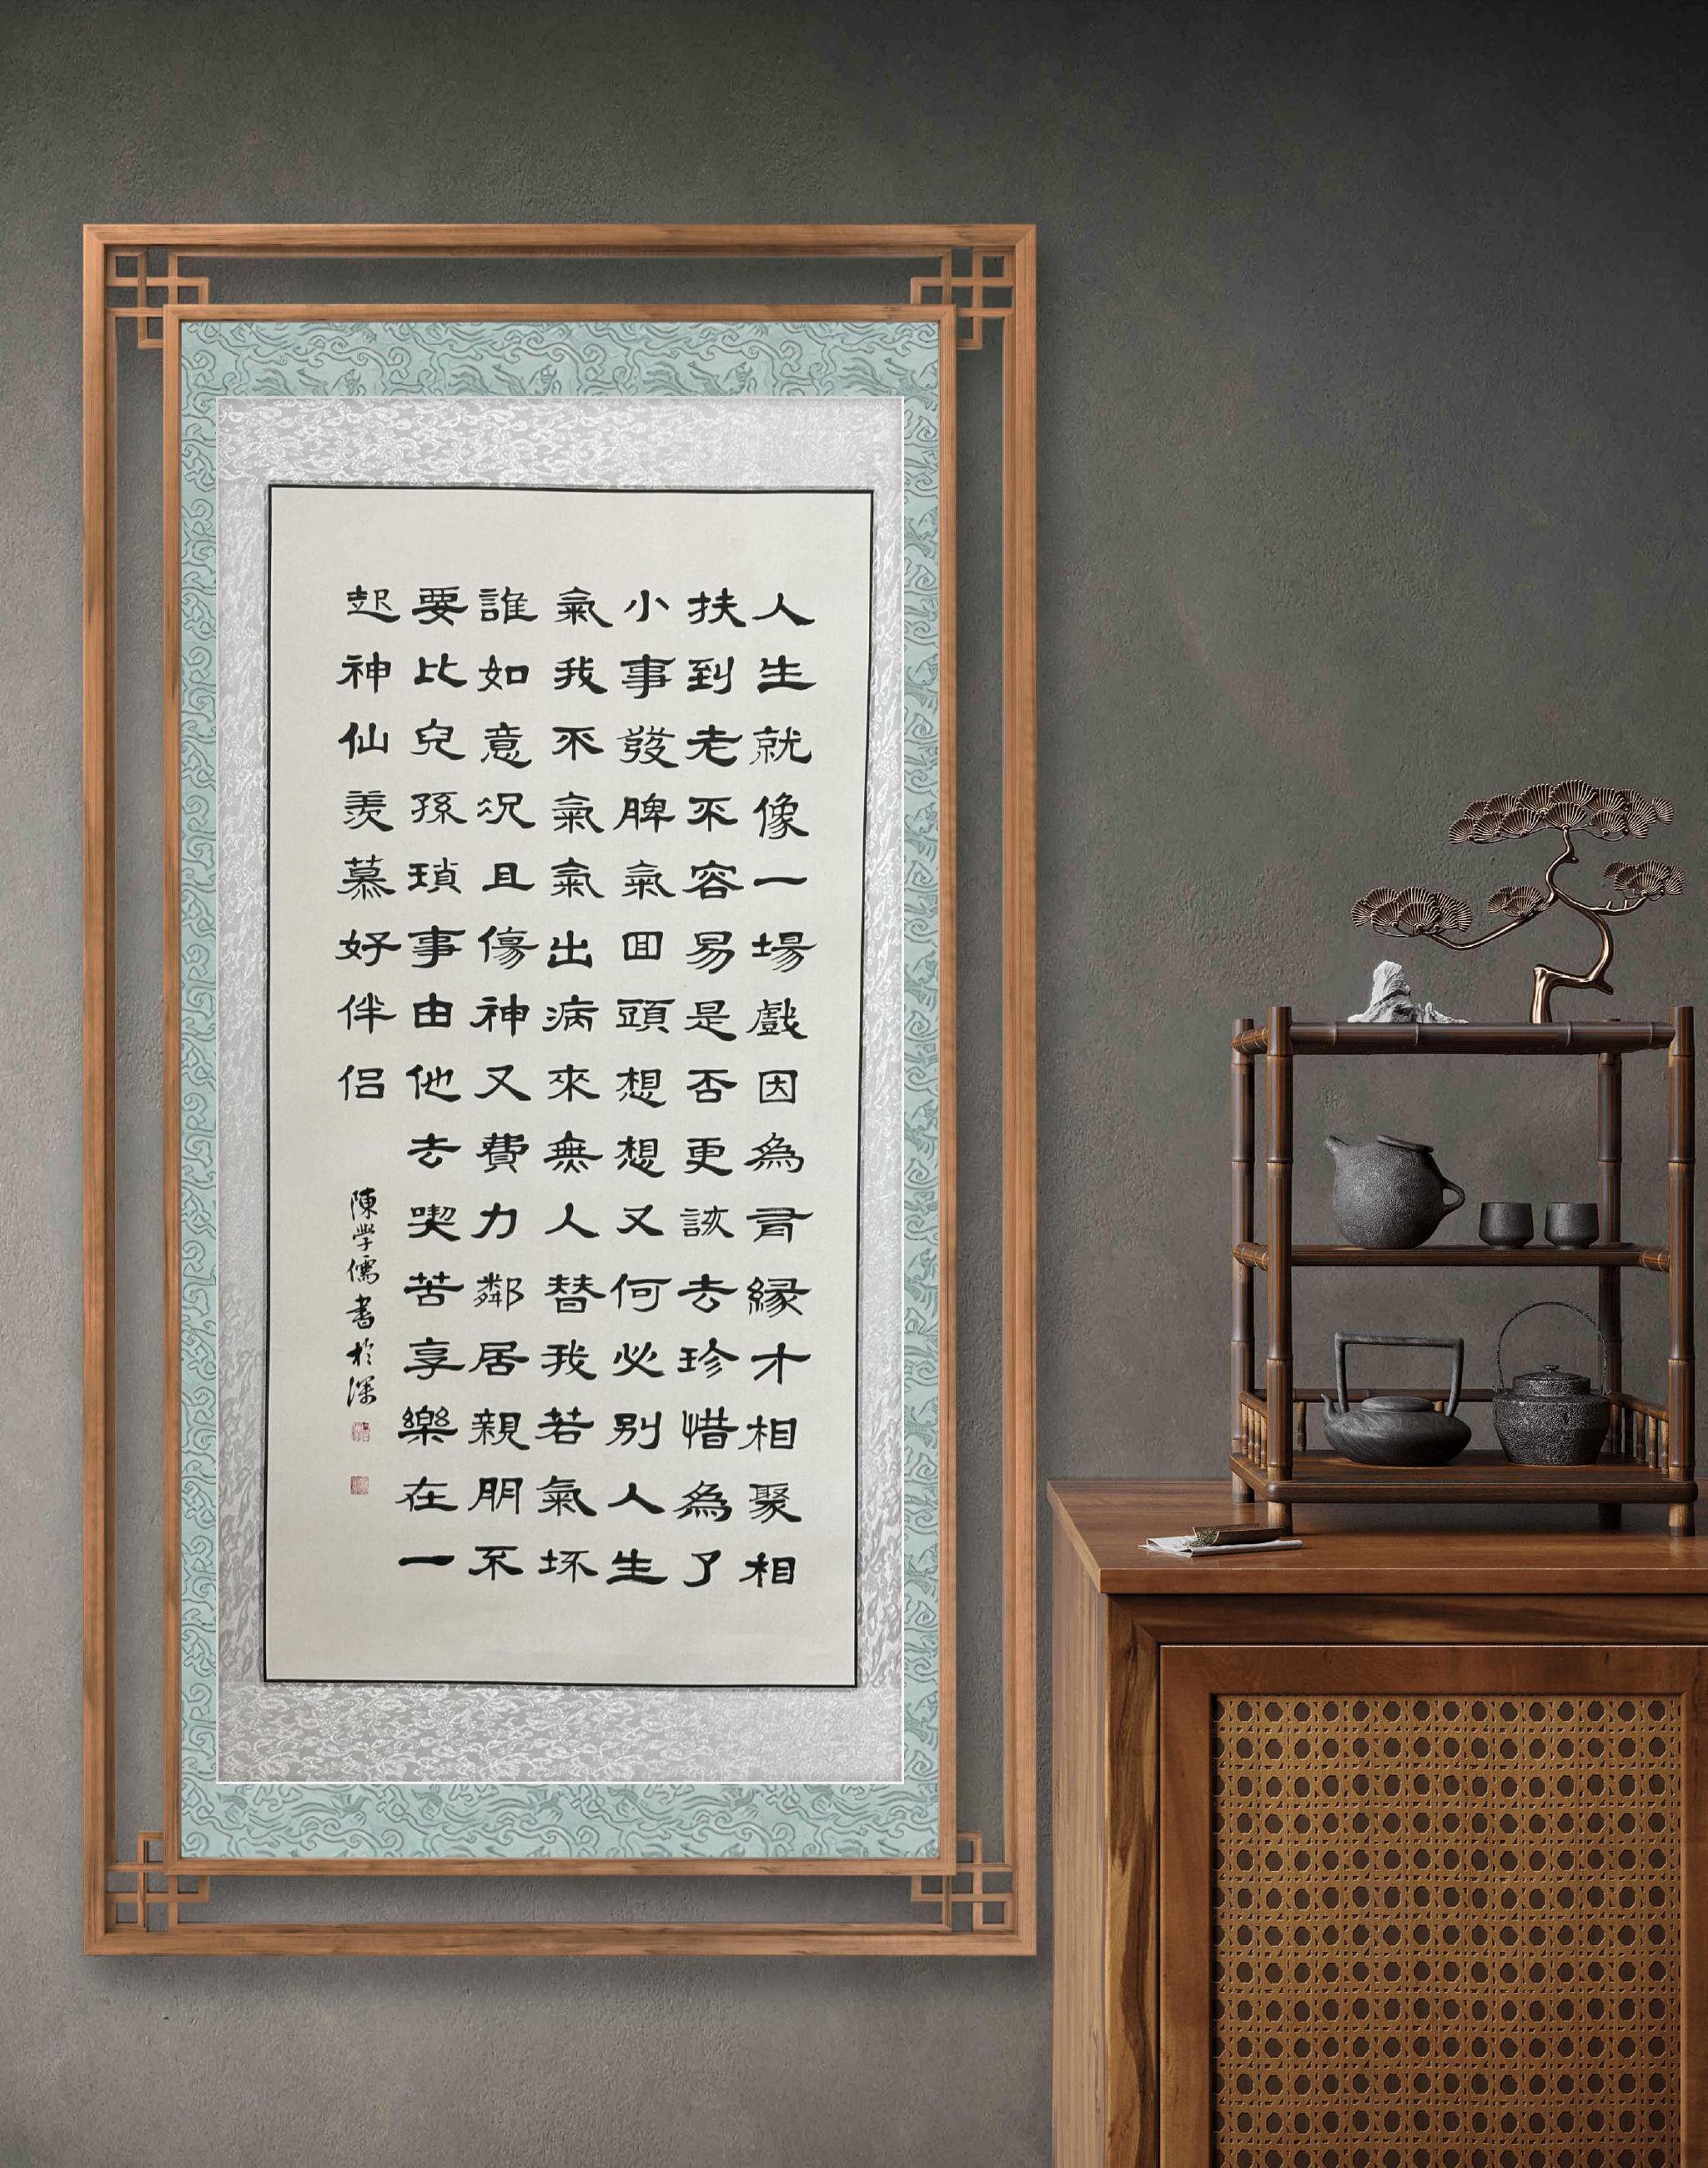 人生就像一場戲因為有緣才相聚相
扶到老不容易是否更該去珍惜為了
小事發脾氣回頭想想又何必別人生
氣我不氣氣出病來無人替我若氣坏
誰如意况且傷神又費力鄰居親朋不
要比兒孫瑣事由他去喫苦享樂在一
起神仙羨慕好伴侶
陳學儒書於深